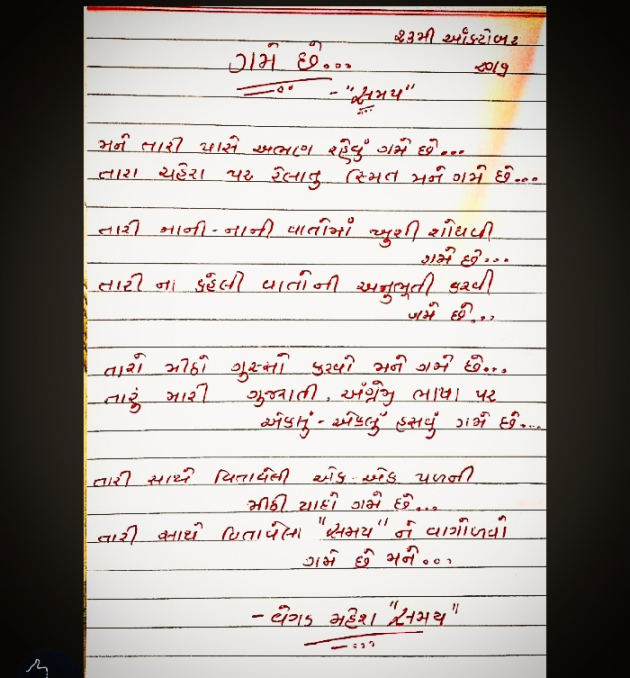 ૨૩મી ઑક્ટોબર
ગમે છે...
૨૦૧૭
- "સમય"
મને તારી પાસે અભણ રહેવું ગમે છે...
તારા ચહેરા પર રેલાતુ સ્મિત મને ગમે છે...
તારી નાની-નાની વાતોમાં ખુશી શોધવી
ગમે છે...
તારી ના કહેલી વાતોની અનુભૂતી કરવી
ગમે છે...
તારો મીઠો ગુસ્સો કરવો મને ગમે છે...
તારું મારી ગુજરાતી, અંગ્રેજી ભાષા પર
એકલું-એકલું હસવું ગમે છે...
તારી સાથે વિતાવેલી એક-એક પળની
મીઠી યાદો ગમે છે...
તારી સાથે વિતાવેલા "સમય" ને વાગોળવો
ગમે છે મને...
- વેગડ મહેશ "સમય"